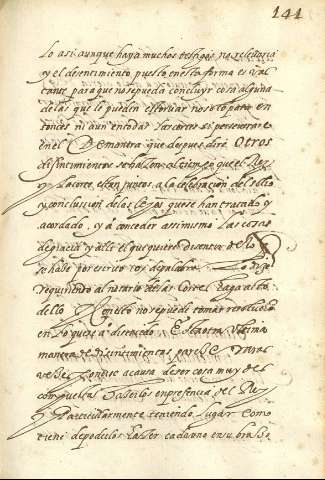 141
Lo assi aunque haya muchos testigos no
y el disentimiento puesto en esta forma es vas
tante para que no se pueda concluyr cosa alguna
de las que le pueden estorvar no solo para en
tonces ni aun en todas las cortes si perseverare
en el Demanera que despues dire Otros
disentimientos se hallan al tiempo que el Rey
y la corte estan juntos a la celebracion del solio
y conclusion de los que se han tratado y
acordado, y a conceder assimismo las cosas
de gracia y alli el que quiere disentir de
se habe por escrito o de palabra
requiriendo al notario de las Cortes haga acto
dello no se puede tomar resolucion
en lo que es a disentido Esta otra ultima
manera de disentimientos
a causa de ser cosa muy des
compuesta hazerlos en presencia del Rey
Particularmente teniendo lugar como
tiene de poderlos hazer cada uno en su brasso